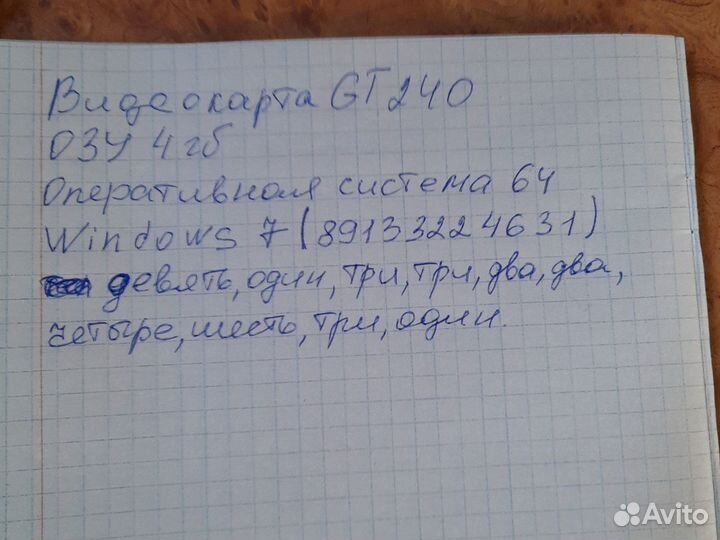 Видеокарта GT240
ОЗУ 4 гб
Оперативная система 64
Windows 7 (89133224631)
девять, один, три, три, два, два,
четыре, шесть, три, один.
Avito